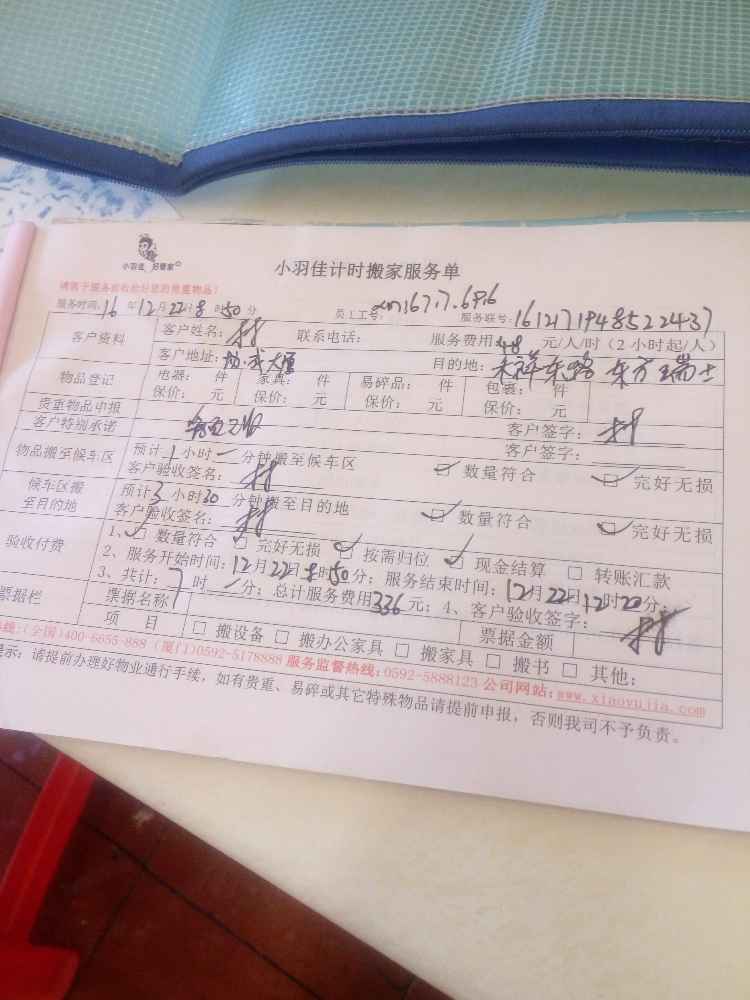 小羽佳 好管家
小羽佳计时搬家服务单
请客户服务前收拾好您的贵重物品!
服务时间:16年12月22日8时50分 员工工号: 服务联号:1612171948522437
客户资料 客户姓名: 联系电话: 服务费用:48元/人/时(2小时起/人)
客户地址: 目的地:东祥东路 东方瑞士
物品登记 电器: 件 家具: 件 易碎品: 件 包裹: 件
保价: 元 保价: 元 保价: 元 保价: 元
贵重物品申报 客户签字:
客户特别承诺 客户签字:
物品搬至候车区 预计1小时一分钟搬至候车区
客户验收签名: 数量符合 完好无损
候车区搬至目的地 预计3小时30分钟搬至目的地
客户验收签名: 数量符合 完好无损
验收付费 1、数量符合 完好无损 按需归位 现金结算 转账汇款
2、服务开始时间:12月22日8时50分;服务结束时间:12月22日12时20分;
3、共计:7时一分;总计服务费用336元;4、客户验收签字:
票据栏 票据名称 票据金额
项 目 搬设备 搬办公家具 搬家具 搬书 其他:
热线:(全国)400-6655-888 (厦门)0592-5178888 服务监督热线:0592-5888123 公司网站:www.xiaoyujia.com
提示:请提前办理好物业通行手续,如有贵重、易碎或其它特殊物品请提前申报,否则我司不予负责。